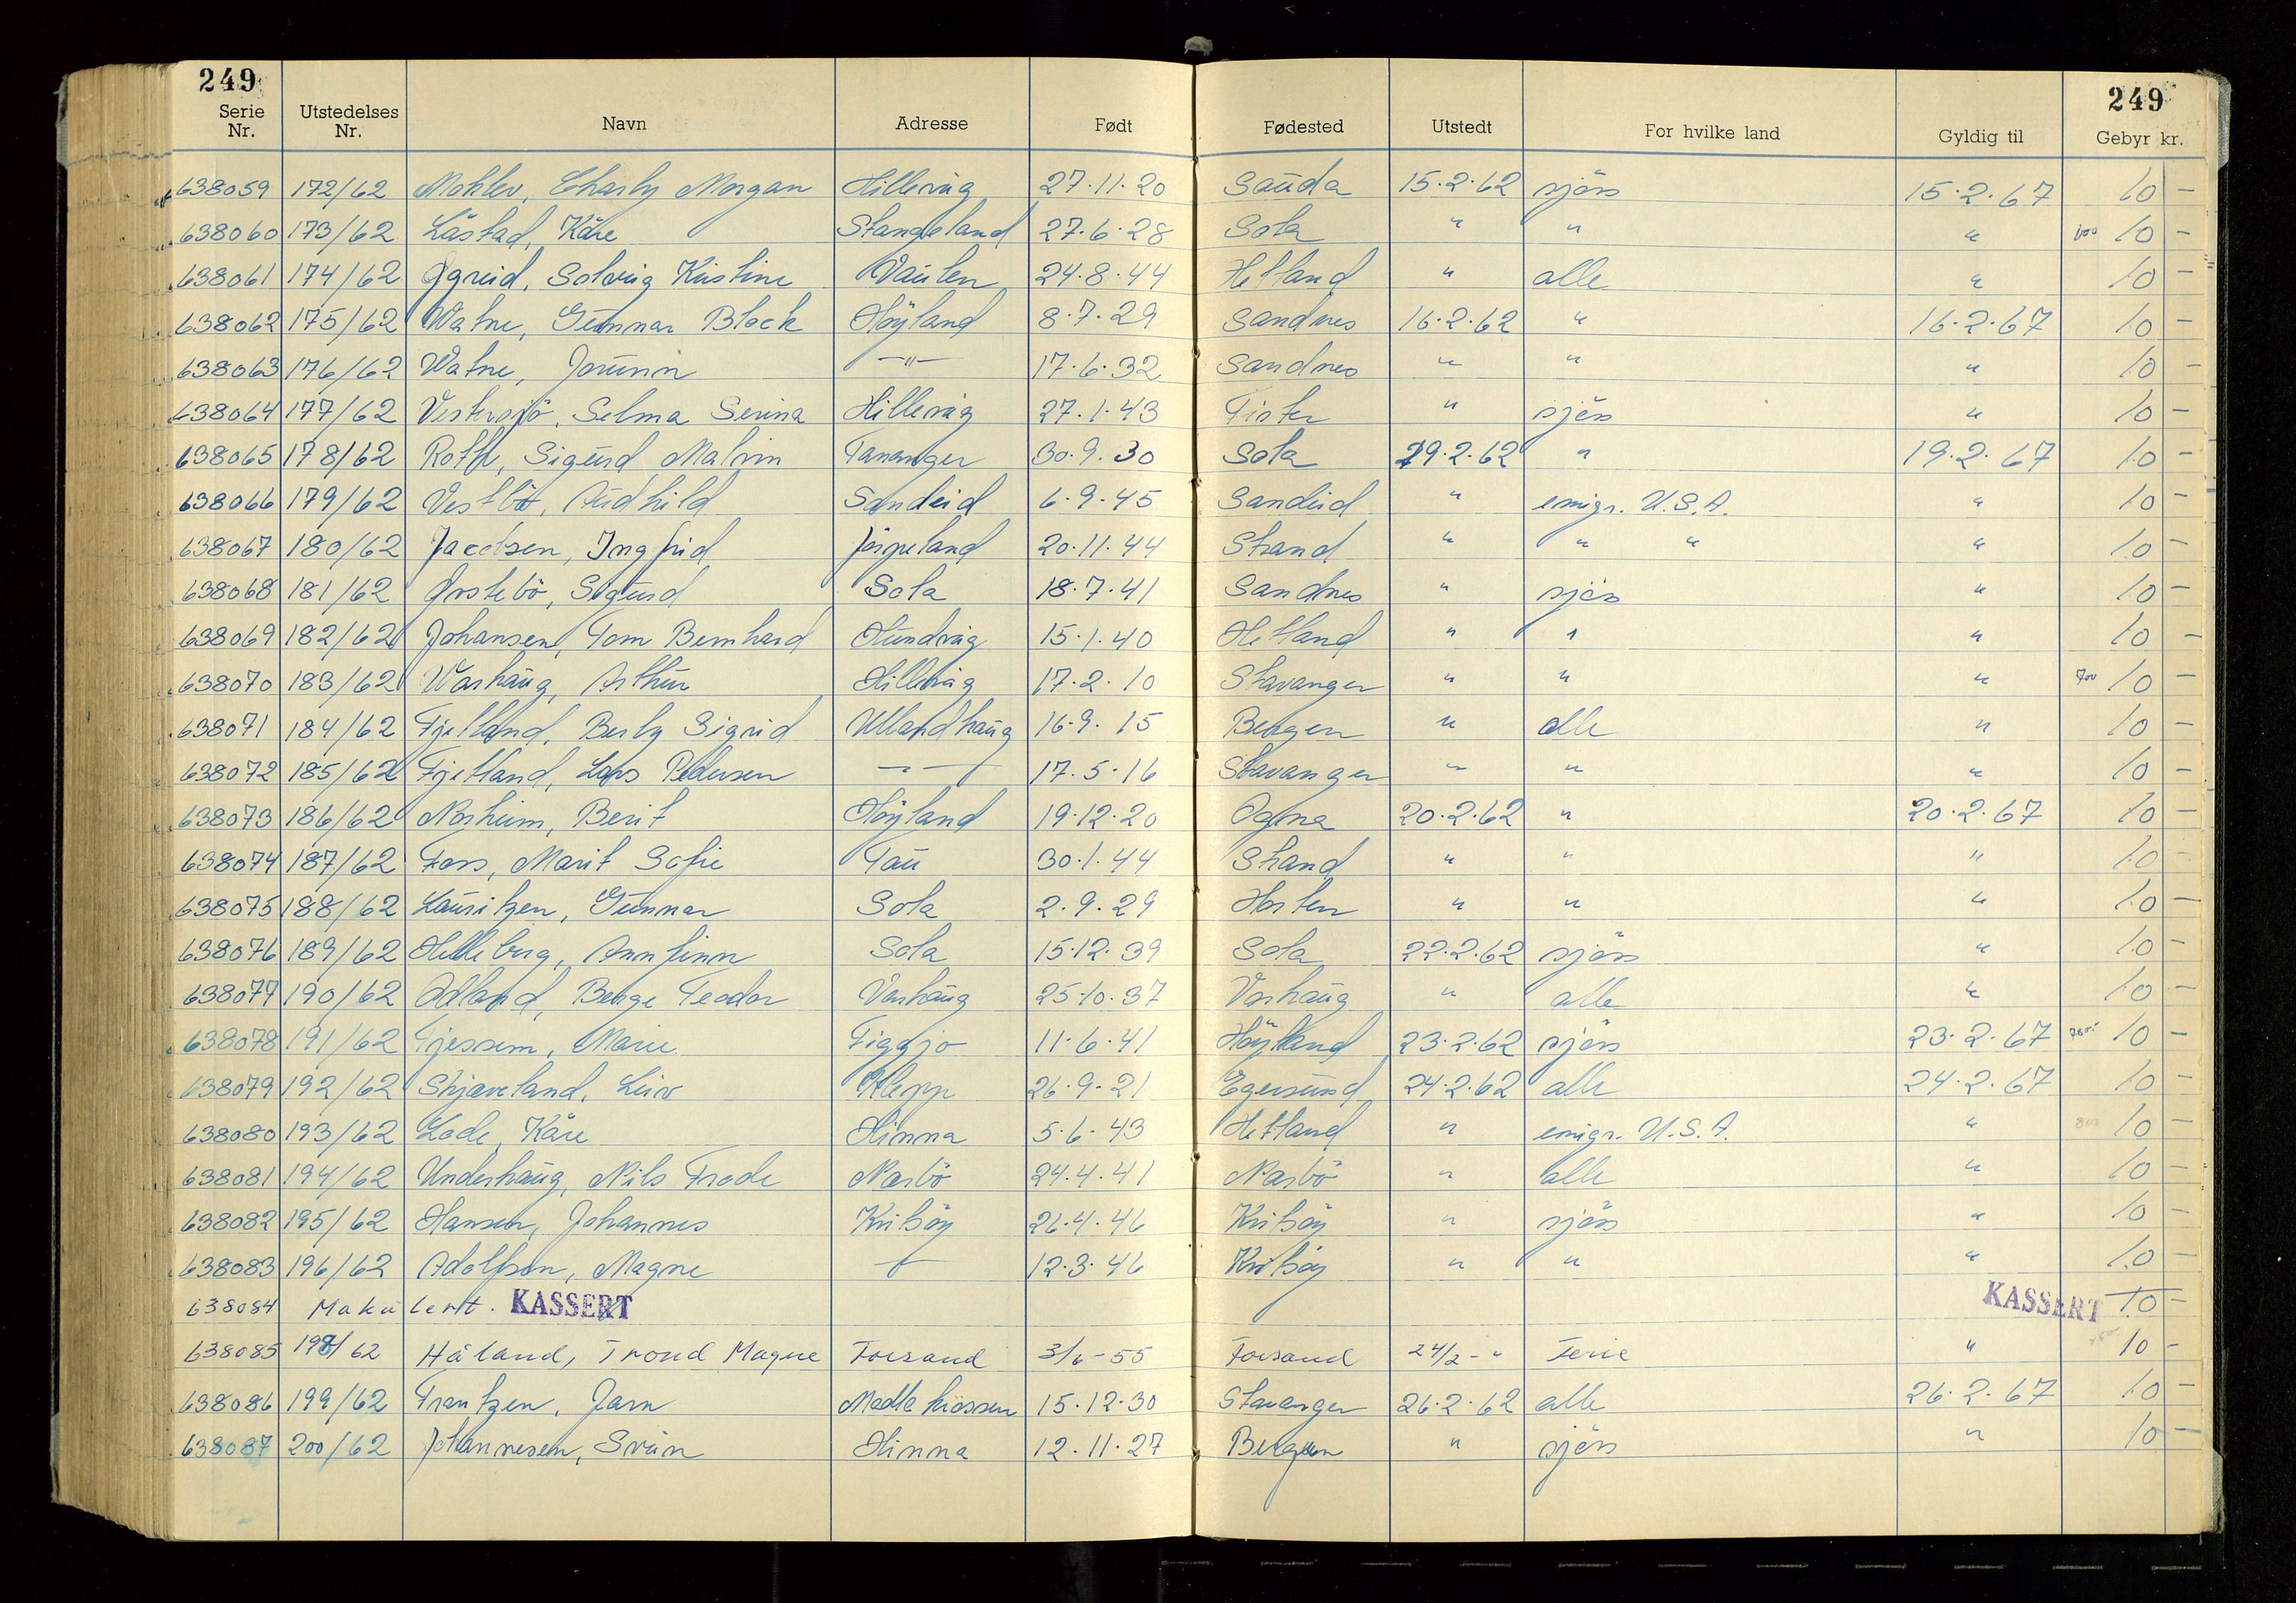 249 249
Serie Nr. Utstedelses Nr. Navn Adresse Født Fødested Utstedt For hvilke land Gyldig til Gebyr kr.
638059 172/62 Charly Morgan Hillevåg 27.11.20 Sauda 15.2.62 sjøss 15.2.67 10 -
638060 173/62 Låstad, Kåre Stangeland 27.6.28 Sola " " " 10 -
638061 174/62 Solveig Kristine Vaulen 24.8.44 Hetland " alle " 10 -
638062 175/62 Watne, Gunnar Block Høyland 8.7.29 Sandnes 16.2.62 " 16.2.67 10 -
638063 176/62 Watne, Jorunn -"- 17.6.32 Sandnes " " " 10 -
638064 177/62 Vestersjö, Selma Serina Hillevåg 27.1.43 Fister " sjöss " 10 -
638065 178/62 Roth, Sigurd Malvin Tananger 30.9.30 Sola 19.2.62 " 19.2.67 10 -
638066 179/62 Vestbö, Audhild Sandeid 6.9.45 Sandeid " emigr. U.S.A. " 10 -
638067 180/62 Jacobsen, Ingfrid Jörpeland 20.11.44 Strand " " " " 10 -
638068 181/62 Sigurd Sola 18.7.41 Sandnes " sjöss " 10 -
638069 182/62 Johansen, Tom Bernhard Hundvåg 15.1.40 Hetland " " " 10 -
638070 183/62 Warhaug, Arthur Hillevåg 17.2.10 Stavanger " " " 700 10 -
638071 184/62 Fjelland, Berly Sigrid Ullandhaug 16.9.15 Bergen " alle " 10 -
638072 185/62 Fjelland, Lars Pedersen -"- 17.5.16 Stavanger " " " 10 -
638073 186/62 Norheim, Berit Höyland 19.12.20 Ogna 20.2.62 " 20.2.67 10 -
638074 187/62 Foss, Marit Sofie Tau 30.1.44 Strand " " " 10 -
638075 188/62 Lauritzen, Gunnar Sola 2.9.29 Horten " " " 10 -
638076 189/62 Helleberg, Annfinn Sola 15.12.39 Sola 22.2.62 sjöss " 10 -
638077 190/62 Ådland, Berge Teodor Varhaug 25.10.37 Varhaug " alle " 10 -
638078 191/62 Tjessem, Marie Figgjo 11.6.41 Höyland 23.2.62 sjöss 23.2.67 10 -
638079 192/62 Skjæveland, Leiv Klepp 26.9.21 Egersund 24.2.62 alle 24.2.67 10 -
638080 193/62 Lode, Kåre Hinna 5.6.43 Hetland " emigr. U.S.A. " 800 10 -
638081 194/62 Underhaug, Nils Frode Nærbö 24.4.41 Nærbö " alle " 10 -
638082 195/62 Hansen, Johannes Kvitsöy 26.4.46 Kvitsöy " sjöss " 10 -
638083 196/62 Adolfsen, Magne -"- 12.3.46 Kvitsöy " " " 10 -
638084 Makulert. KASSERT KASSERT 10 -
638085 198/62 Håland, Trond Magne Forsand 3/6-55 Forsand 24/2-" Ferie " 10 -
638086 199/62 Frantzen, Jarn Madlakrossen 15.12.30 Stavanger 26.2.62 alle 26.2.67 10 -
638087 200/62 Johannesen, Svein Hinna 12.11.27 Bergen " sjöss " 10 -